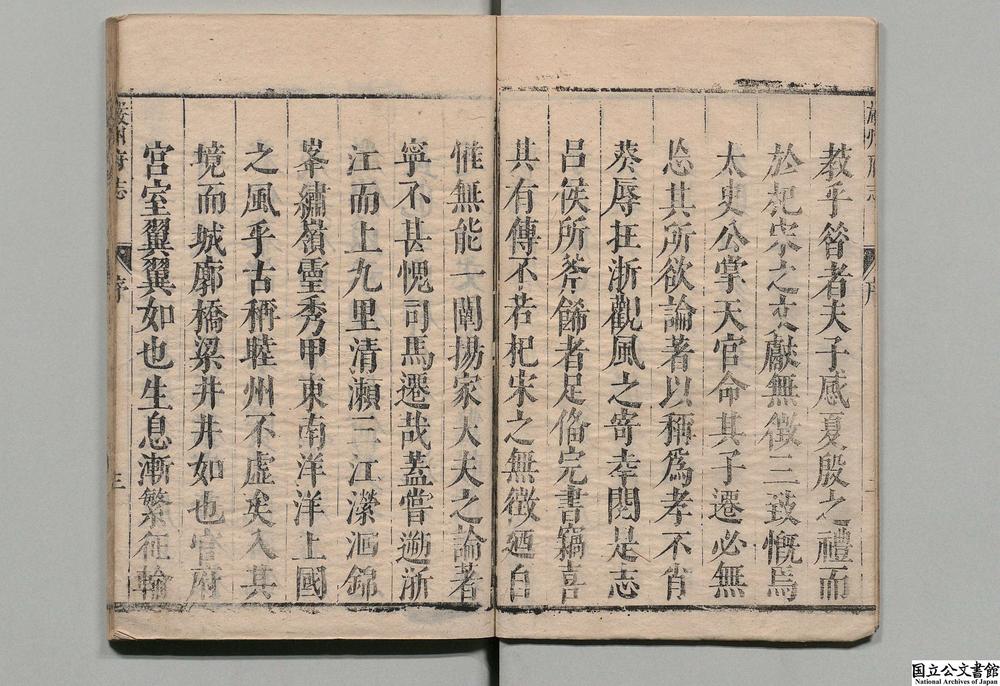 教乎昝者夫子感夏殷之禮而
於杞宋之文獻無徵三致慨焉
太史公掌天官命其子遷必無
忩其所欲論著以稱爲孝不肖
葵辱在浙觀風之寄幸閱是志
呂侯所斧飾者足俻完書竊喜
其有傳不若杞宋之無徵廼自
惟無能一闡揚家大夫之論著
寧不甚愧司馬遷哉蓋嘗遡浙
江而上九里清瀨三江瀠洄錦
峯繡嶺靈秀甲東南洋洋上國
之風乎古稱睦州不虛矣入其
境而城廓橋梁井井如也官府
宮室翼翼如也生息漸繁征輸
嚴州府志
序
三
国立公文書館
National Archives of Japan